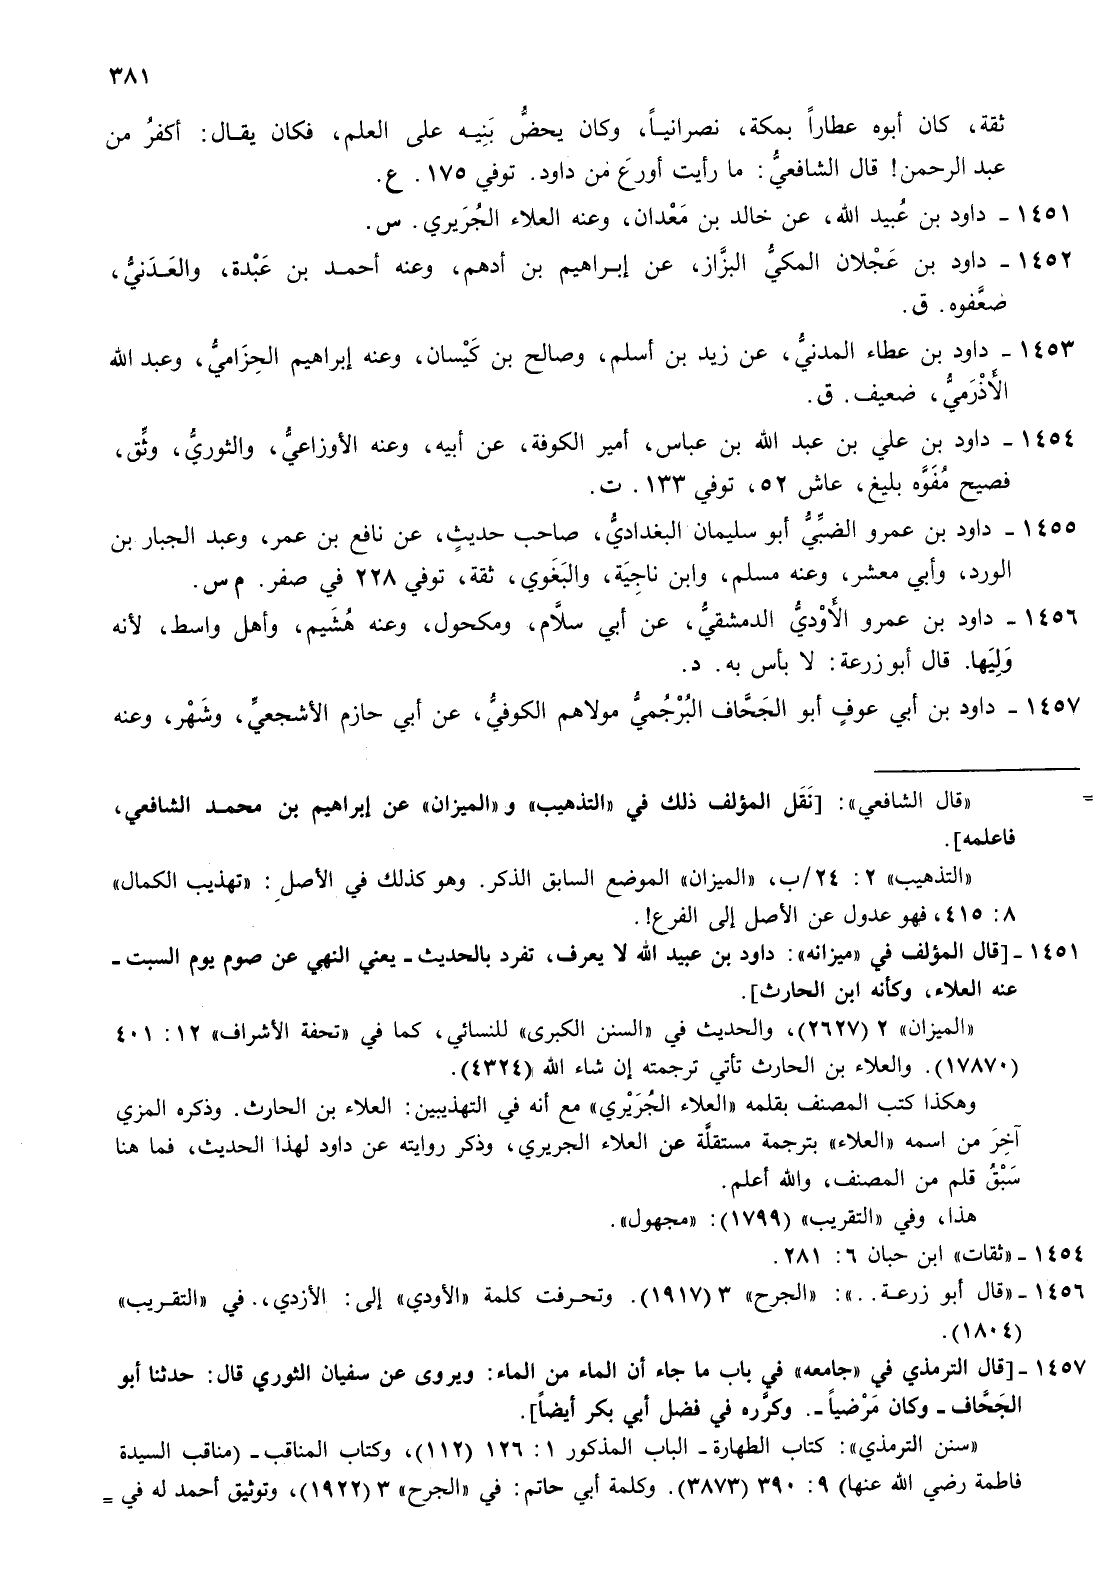 ٣٨١
ثقة، كان أبوه عطاراً بمكة، نصرانيـاً، وكان يحضُّ بَنِيـه على العلم، فكان يقـال: أكفرُ من
عبد الرحمن! قال الشافعيُّ: ما رأيت أورعَ من داود. توفي ١٧٥. ع.
١٤٥١ ـ داود بن عُبيد الله، عن خالد بن مَعْدان، وعنه العلاء الجُرَيري. س.
١٤٥٢ ـ داود بن عَجْلان المكيُّ البزَّاز، عن إبـراهيم بن أدهم، وعنه أحمـد بن عَبْدة، والعَـدَنيُّ،
ضعَّفوه. ق.
١٤٥٣ ـ داود بن عطاء المدنيُّ، عن زيد بن أسلم، وصالح بن كَيْسان، وعنه إبراهيم الحِزَاميُّ، وعبد الله
الأَذْرَميُّ، ضعيف. ق.
١٤٥٤ ـ داود بن علي بن عبد الله بن عباس، أمير الكوفة، عن أبيه، وعنه الأوزاعيُّ، والثوريُّ، وثِّق،
فصيح مُفَوَّه بليغ، عاش ٥٢، توفي ١٣٣. ت.
١٤٥٥ ـ داود بن عمرو الضبِّيُّ أبو سليمان البغداديُّ، صاحب حديثٍ، عن نافع بن عمر، وعبد الجبار بن
الورد، وأبي معشر، وعنه مسلم، وابن ناجِيَة، والبَغَوي، ثقة، توفي ٢٢٨ في صفر. م س.
١٤٥٦ ـ داود بن عمرو الأَوْديُّ الدمشقيُّ، عن أبي سلاَّم، ومكحول، وعنه هُشَيم، وأهل واسط، لأنه
وَلِيَها. قال أبو زرعة: لا بأس به. د.
١٤٥٧ ـ داود بن أبي عوفٍ أبو الجَحَّاف البُرْجُميُّ مولاهم الكوفيُّ، عن أبي حازم الأشجعيِّ، وشَهْر، وعنه
= «قال الشافعي»: [نَقَل المؤلف ذلك في «التذهيب» و«الميزان» عن إبراهيم بن محمـد الشافعي،
فاعلمه].
«التذهيب» ٢: ٢٤/ب، «الميزان» الموضع السابق الذكر. وهو كذلك في الأصل: «تهذيب الكمال»
٨: ٤١٥، فهو عدول عن الأصل إلى الفرع!.
١٤٥١ ـ [قال المؤلف في «ميزانه»: داود بن عبيد الله لا يعرف، تفرد بالحديث ـ يعني النهي عن صوم يوم السبت ـ
عنه العلاء، وكأنه ابن الحارث].
«الميزان» ٢ (٢٦٢٧)، والحديث في «السنن الكبرى» للنسائي، كما في «تحفة الأشراف» ١٢: ٤٠١
(١٧٨٧٠). والعلاء بن الحارث تأتي ترجمته إن شاء الله (٤٣٢٤).
وهكذا كتب المصنف بقلمه «العلاء الجُرَيْري» مع أنه في التهذيبين: العلاء بن الحارث. وذكره المزي
آخِرَ من اسمه «العلاء» بترجمة مستقلَّة عن العلاء الجريري، وذكر روايته عن داود لهذا الحديث، فما هنا
سَبْقُ قلم من المصنف، والله أعلم.
هذا، وفي «التقريب» (١٧٩٩): «مجهول».
١٤٥٤ ـ «ثقات» ابن حبان ٦: ٢٨١.
١٤٥٦ ـ «قال أبو زرعـة..»: «الجرح» ٣ (١٩١٧). وتحـرفت كلمة «الأودي» إلى: الأزدي،. في «التقـريب»
(١٨٠٤).
١٤٥٧ ـ [قال الترمذي في «جامعه» في باب ما جاء أن الماء من الماء: ويروى عن سفيان الثوري قال: حدثنا أبو
الجَحَّاف ـ وكان مَرْضياً ـ. وكرَّره في فضل أبي بكر أيضاً].
«سنن الترمذي»: كتاب الطهارة ـ الباب المذكور ١: ١٢٦ (١١٢)، وكتاب المناقب ـ (مناقب السيدة
فاطمة رضي الله عنها) ٩: ٣٩٠ (٣٨٧٣). وكلمة أبي حاتم: في «الجرح» ٣ (١٩٢٢)، وتوثيق أحمد له في =